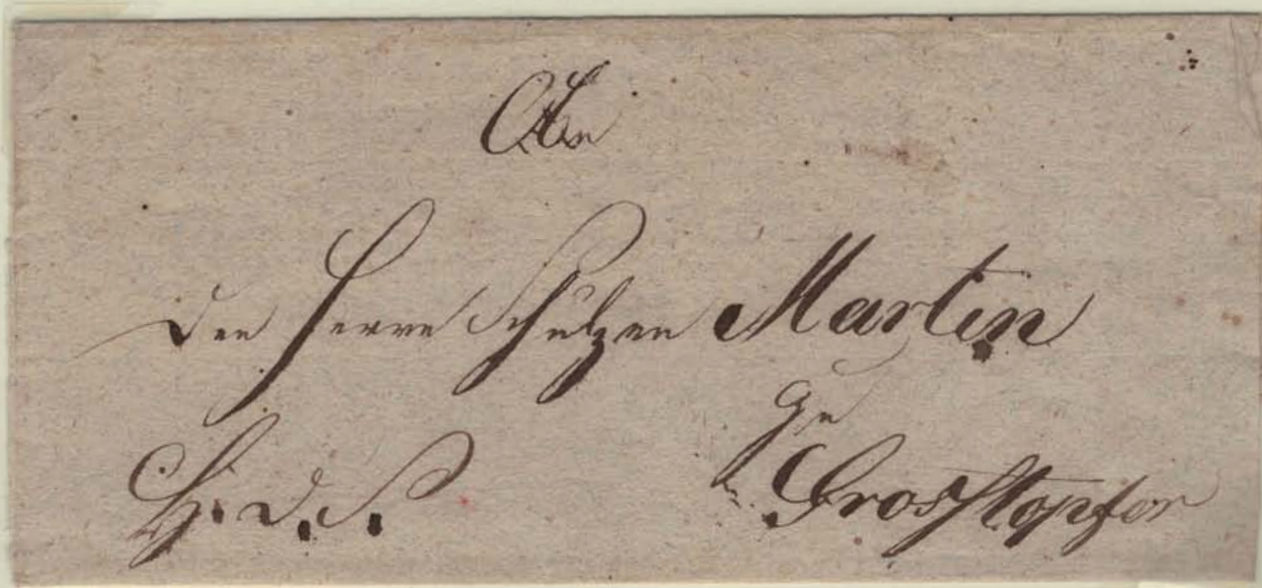 An
den Herrn Schulzen Martin
zu
H. d. S. Grosstopfer